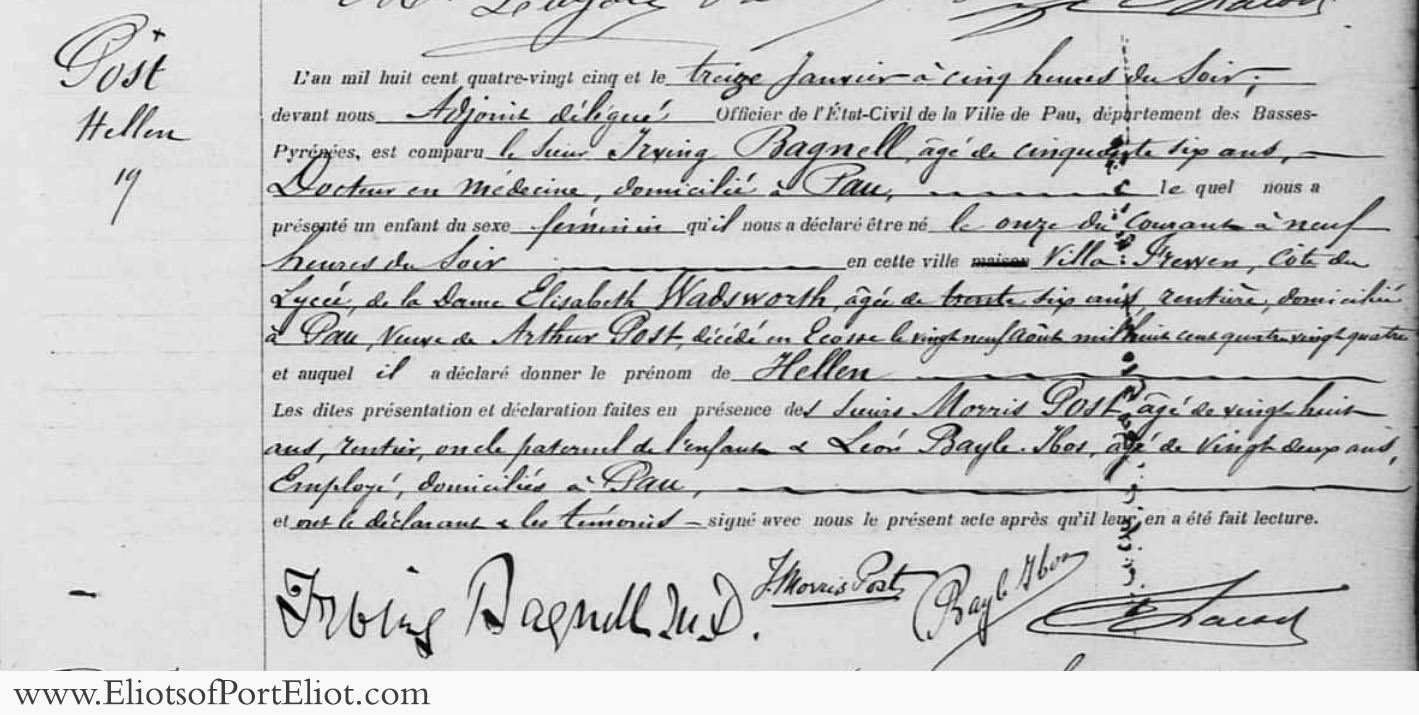 Post
Hellen
19
L'an mil huit cent quatre-vingt cinq et le treize Janvier à cinq heures du Soir,
devant nous Adjoint délégué Officier de l'État-Civil de la Ville de Pau, département des Basses-
Pyrénées, est comparu le sieur Irving Bagnell, âgé de cinquante six ans,
Docteur en médecine, domicilié à Pau, le quel nous a
présenté un enfant du sexe féminin qu'il nous a déclaré être né le onze du courant à neuf
heures du Soir en cette ville maison Villa: Tressen, Côte du
Lycée, de la Dame Elisabeth Wadsworth, âgée de trente six ans, rentière, domiciliée
à Pau, Veuve de Arthur Post, décédé en Ecosse le vingt neuf Août mil huit cent quatre vingt quatre
et auquel il a déclaré donner le prénom de Hellen
Les dites présentation et déclaration faites en présence des sieurs Morris Post, âgé de vingt huit
ans, rentier, oncle paternel de l'enfant & Léon Bayle-Ibos, âgé de vingt deux ans,
Employé, domiciliés à Pau,
et ont le déclarant & les témoins signé avec nous le présent acte après qu'il leur en a été fait lecture.
Irving Bagnell M.D. J. Morris Post Bayle Ibos
www.EliotsofPortEliot.com